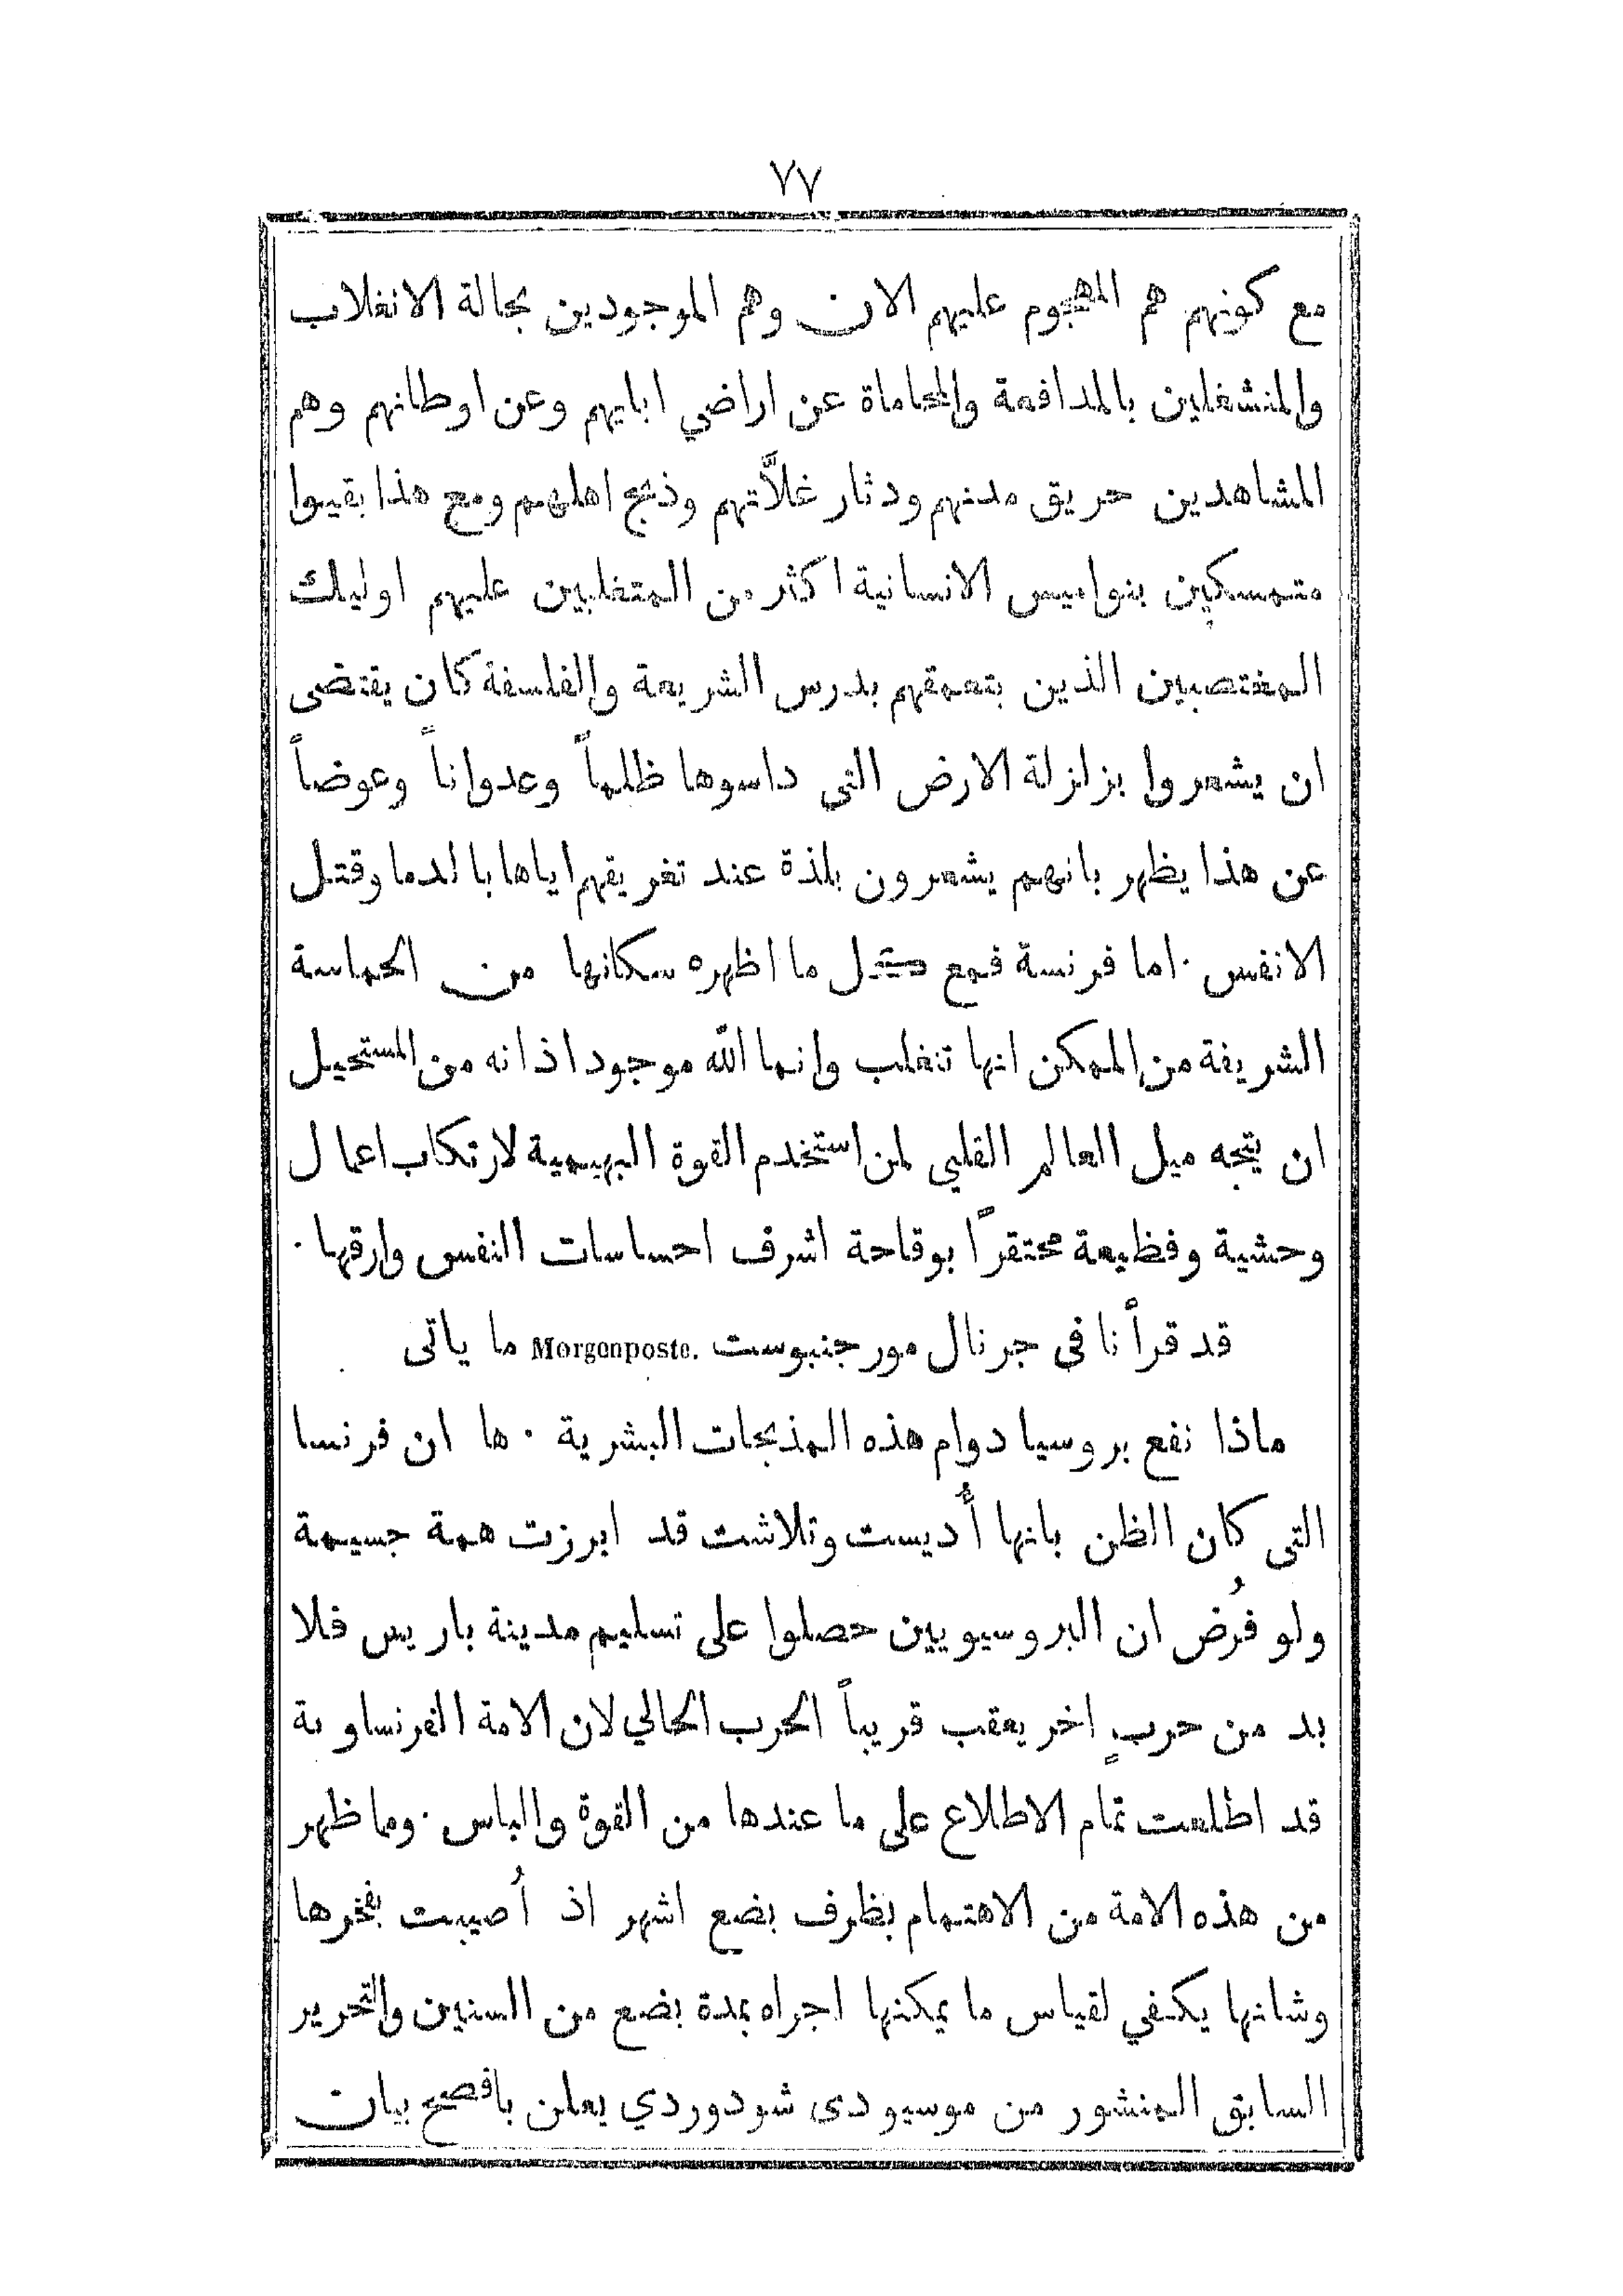 ٧٧
مع كونهم هم المهجوم عليهم الان وهم الموجودين بحالة الانغلاب
والمنشغلين بالمدافعة والمحاماة عن اراضي ابايهم وعن اوطانهم وهم
المشاهدين حريق مدنهم ودثار غلاَّتهم وذبح اهلهم ومع هذا بقيوا
متمسكين بنواميس الانسانية اكثر من المتغلبين عليهم اوليك
المغتصبين الذين بتعمقهم بدرس الشريعة والفلسفة كان يقتضى
ان يشعروا بزلزلة الارض التى داسوها ظلماً وعدواناً وعوضاً
عن هذا يظهر بانهم يشعرون بلذة عند تغريقهم اياها بالدما وقتل
الانفس · اما فرنسة فمع كل ما اظهره سكانها من الحماسة
الشريفة من الممكن انها تنغلب وانما الله موجود اذ انه من المستحيل
ان يتجه ميل العالم القلبي لمن استخدم القوة البهيمية لارتكاب اعمال
وحشية وفظيعة محتقرًا بوقاحة اشرف احساسات النفس وارقها ·
قد قرأنا فى جرنال مورجنبوست .Morgenposte ما ياتى
ماذا نفع بروسيا دوام هذه المذبحات البشرية · ها ان فرنسا
التى كان الظن بانها أُديست وتلاشت قد ابرزت همة جسيمة
ولو فُرض ان البروسيويين حصلوا على تسليم مدينة باريس فلا
بد من حربٍ اخر يعقب قريباً الحرب الحالي لان الامة الفرنساوية
قد اطلعت تمام الاطلاع على ما عندها من القوة والباس · وما ظهر
من هذه الامة من الاهتمام بظرف بضع اشهر اذ أُصيبت بفخرها
وشانها يكفي لقياس ما يمكنها اجراه بمدة بضع من السنين والتحرير
السابق المنشور من موسيو دى شودوردي يعلن بافصح بيان